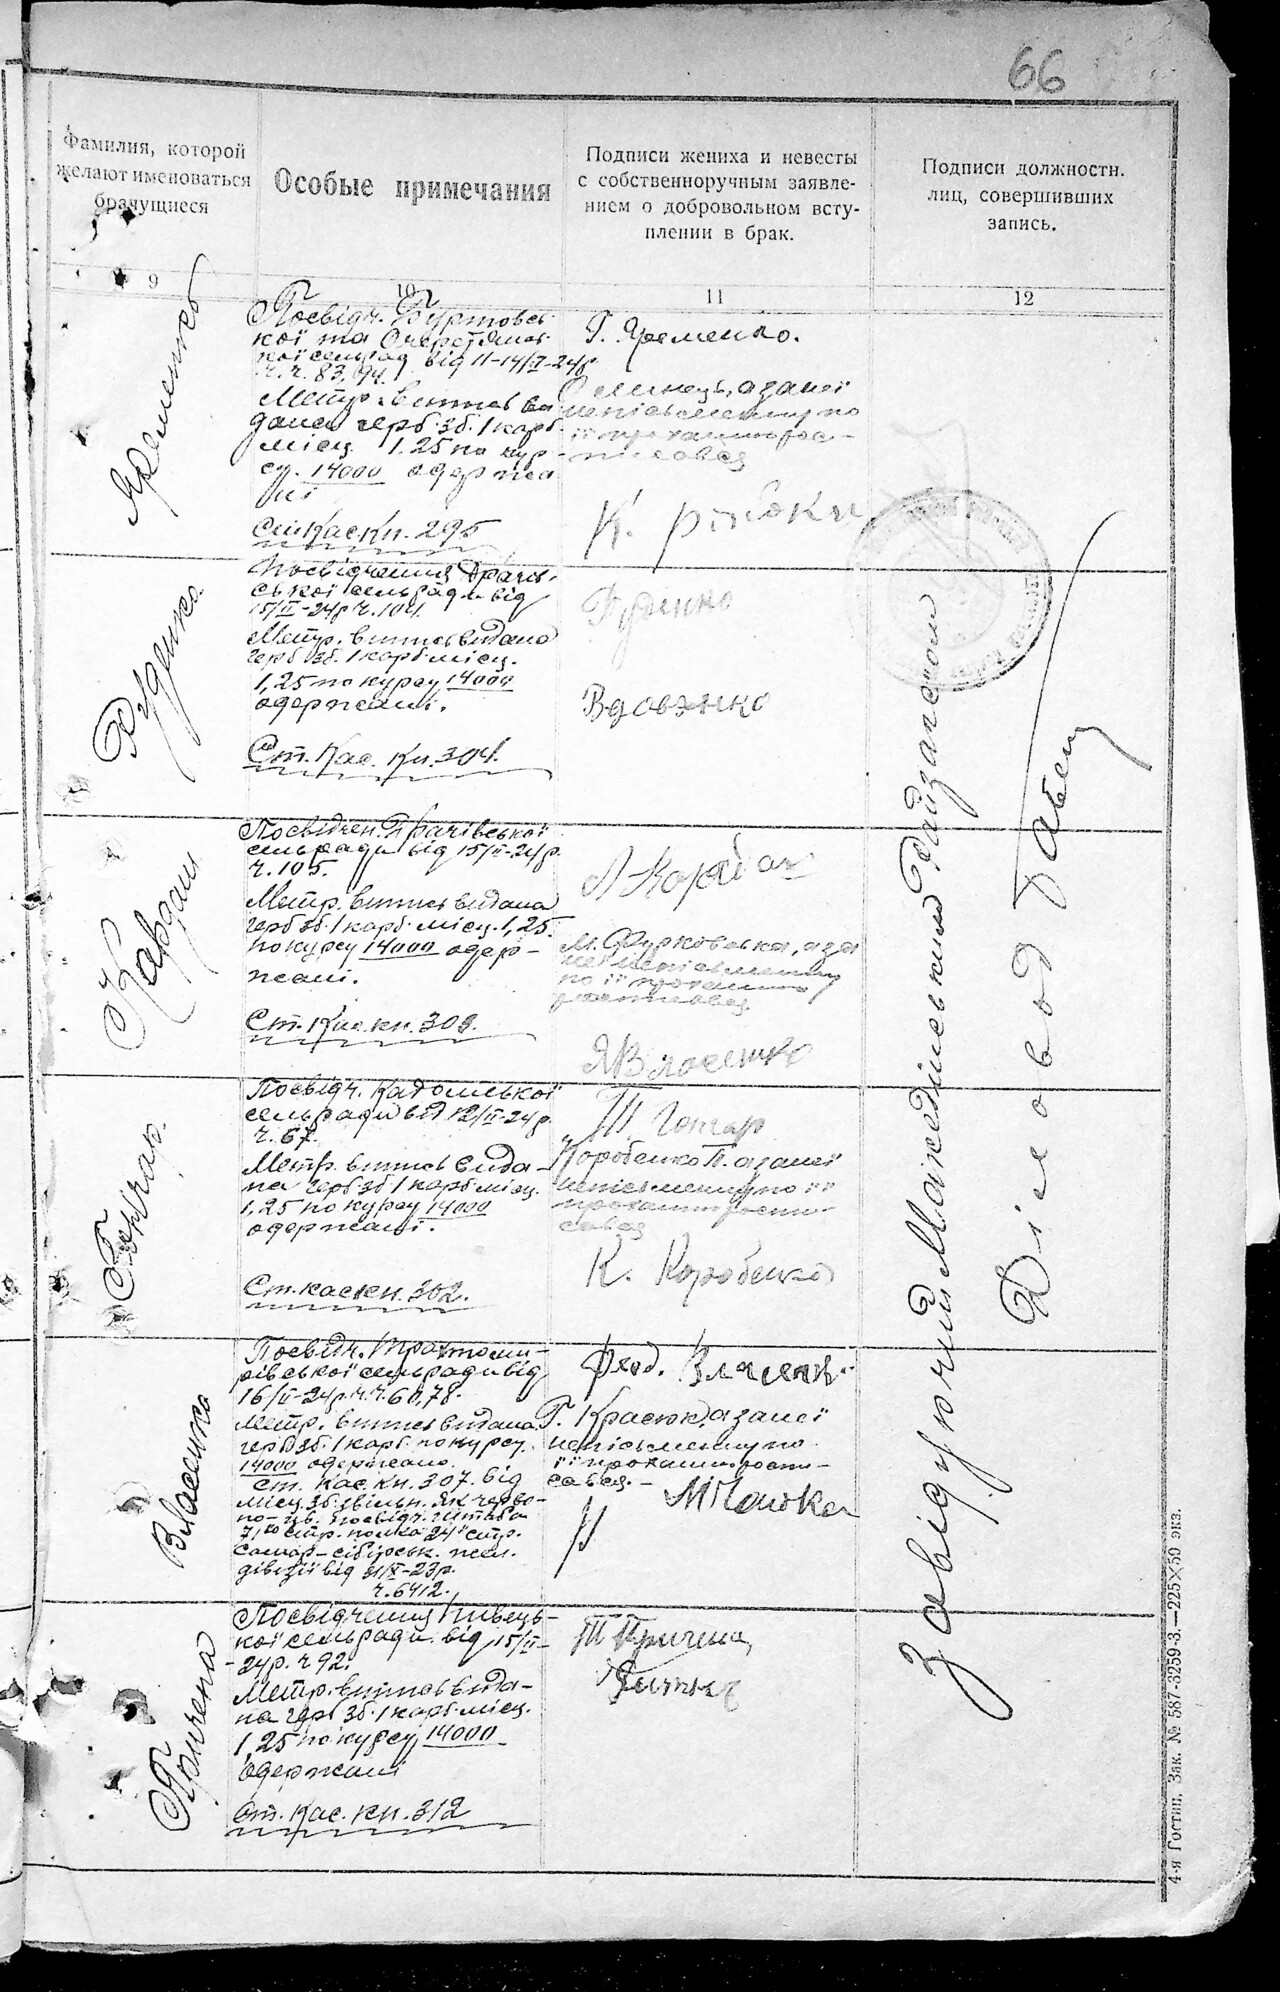 66
Фамилия, которой
желают именоваться
брачущиеся
Особые примечания
Подписи жениха и невесты
с собственноручным заявле-
нием о добровольном всту-
плении в брак.
Подписи должностн.
лиц, совершивших
запись.
9
10
11
12
Яременко
Посвідч. Буртовсь-
кої та
кої сельрад від 11-14/II-24р
ч. ч. 83, 94.
Метр. витпсь ви
дана герб. зб. 1 карб.
місц. 1.25 по кур-
су. 14000 одержа
ні
Ст. Кас. Кн. 295
Г. Яременко.
а за неї
неписьменну по
її проханню рос-
писався
К.
Руденко
Посвідчення
ської сельради від
15/II-24р ч. 104.
Метр. витпсь видана
герб зб. 1 карб. місц.
1,25 по курсу 14000
одержані.
Ст. Кас. Кн. 304.
Руденко
Вдовэнко
Посвідчен.
сельради від 15/II-24р.
ч. 105.
Метр. витпсь видана
герб зб. 1 карб. місц. 1,25
по курсу 14000 одер-
жані.
Ст. Кас. кн. 309.
М. Фурковська, а за
неї неписьменну
по її проханню
росписався
Я Власенко
Гончар.
Посвідч. Кадомської
сельради від 12/II-24р.
ч. 67.
Метр. витпсь вида-
на герб зб 1 карб місц.
1,25 по курсу 14000
одержані.
Ст. кас кн. 302.
Т. Гончар
Коробенко П. а за неї
неписьменну по її
проханню роспи-
сався
К. Коробенко
Власенко
Посвідч. Трахтоми-
рівської сельради від
16/II-24р. ч. ч. 60, 78.
Метр. витпсь видана
герб зб. 1 карб. по курсу
14000 одержано.
Ст. кас. кн. 307. від
місц. зб. звільн. як черво-
но-
71го стр. полка 24ї стр.
Самар-сібірськ. жел.
дівізії від 31/X-23р.
ч. 6412.
Фед. Власенк.
Г. Красюк, а за неї
неписьменну по
її проханню роспи-
сався. -
Причепа
Посвідчення Пивець-
кої сельради від 15/II-
-24р. ч 92.
Метр. витпсь вида-
на герб зб. 1 карб. місц.
1,25 по курсу 14000
одержані
Ст. Кас. кн. 312
Т Причепа
Завідуючий Райзагсом
Діловод
4-я Гостип. Зак. № 587-3259-3.—225×50 экз.